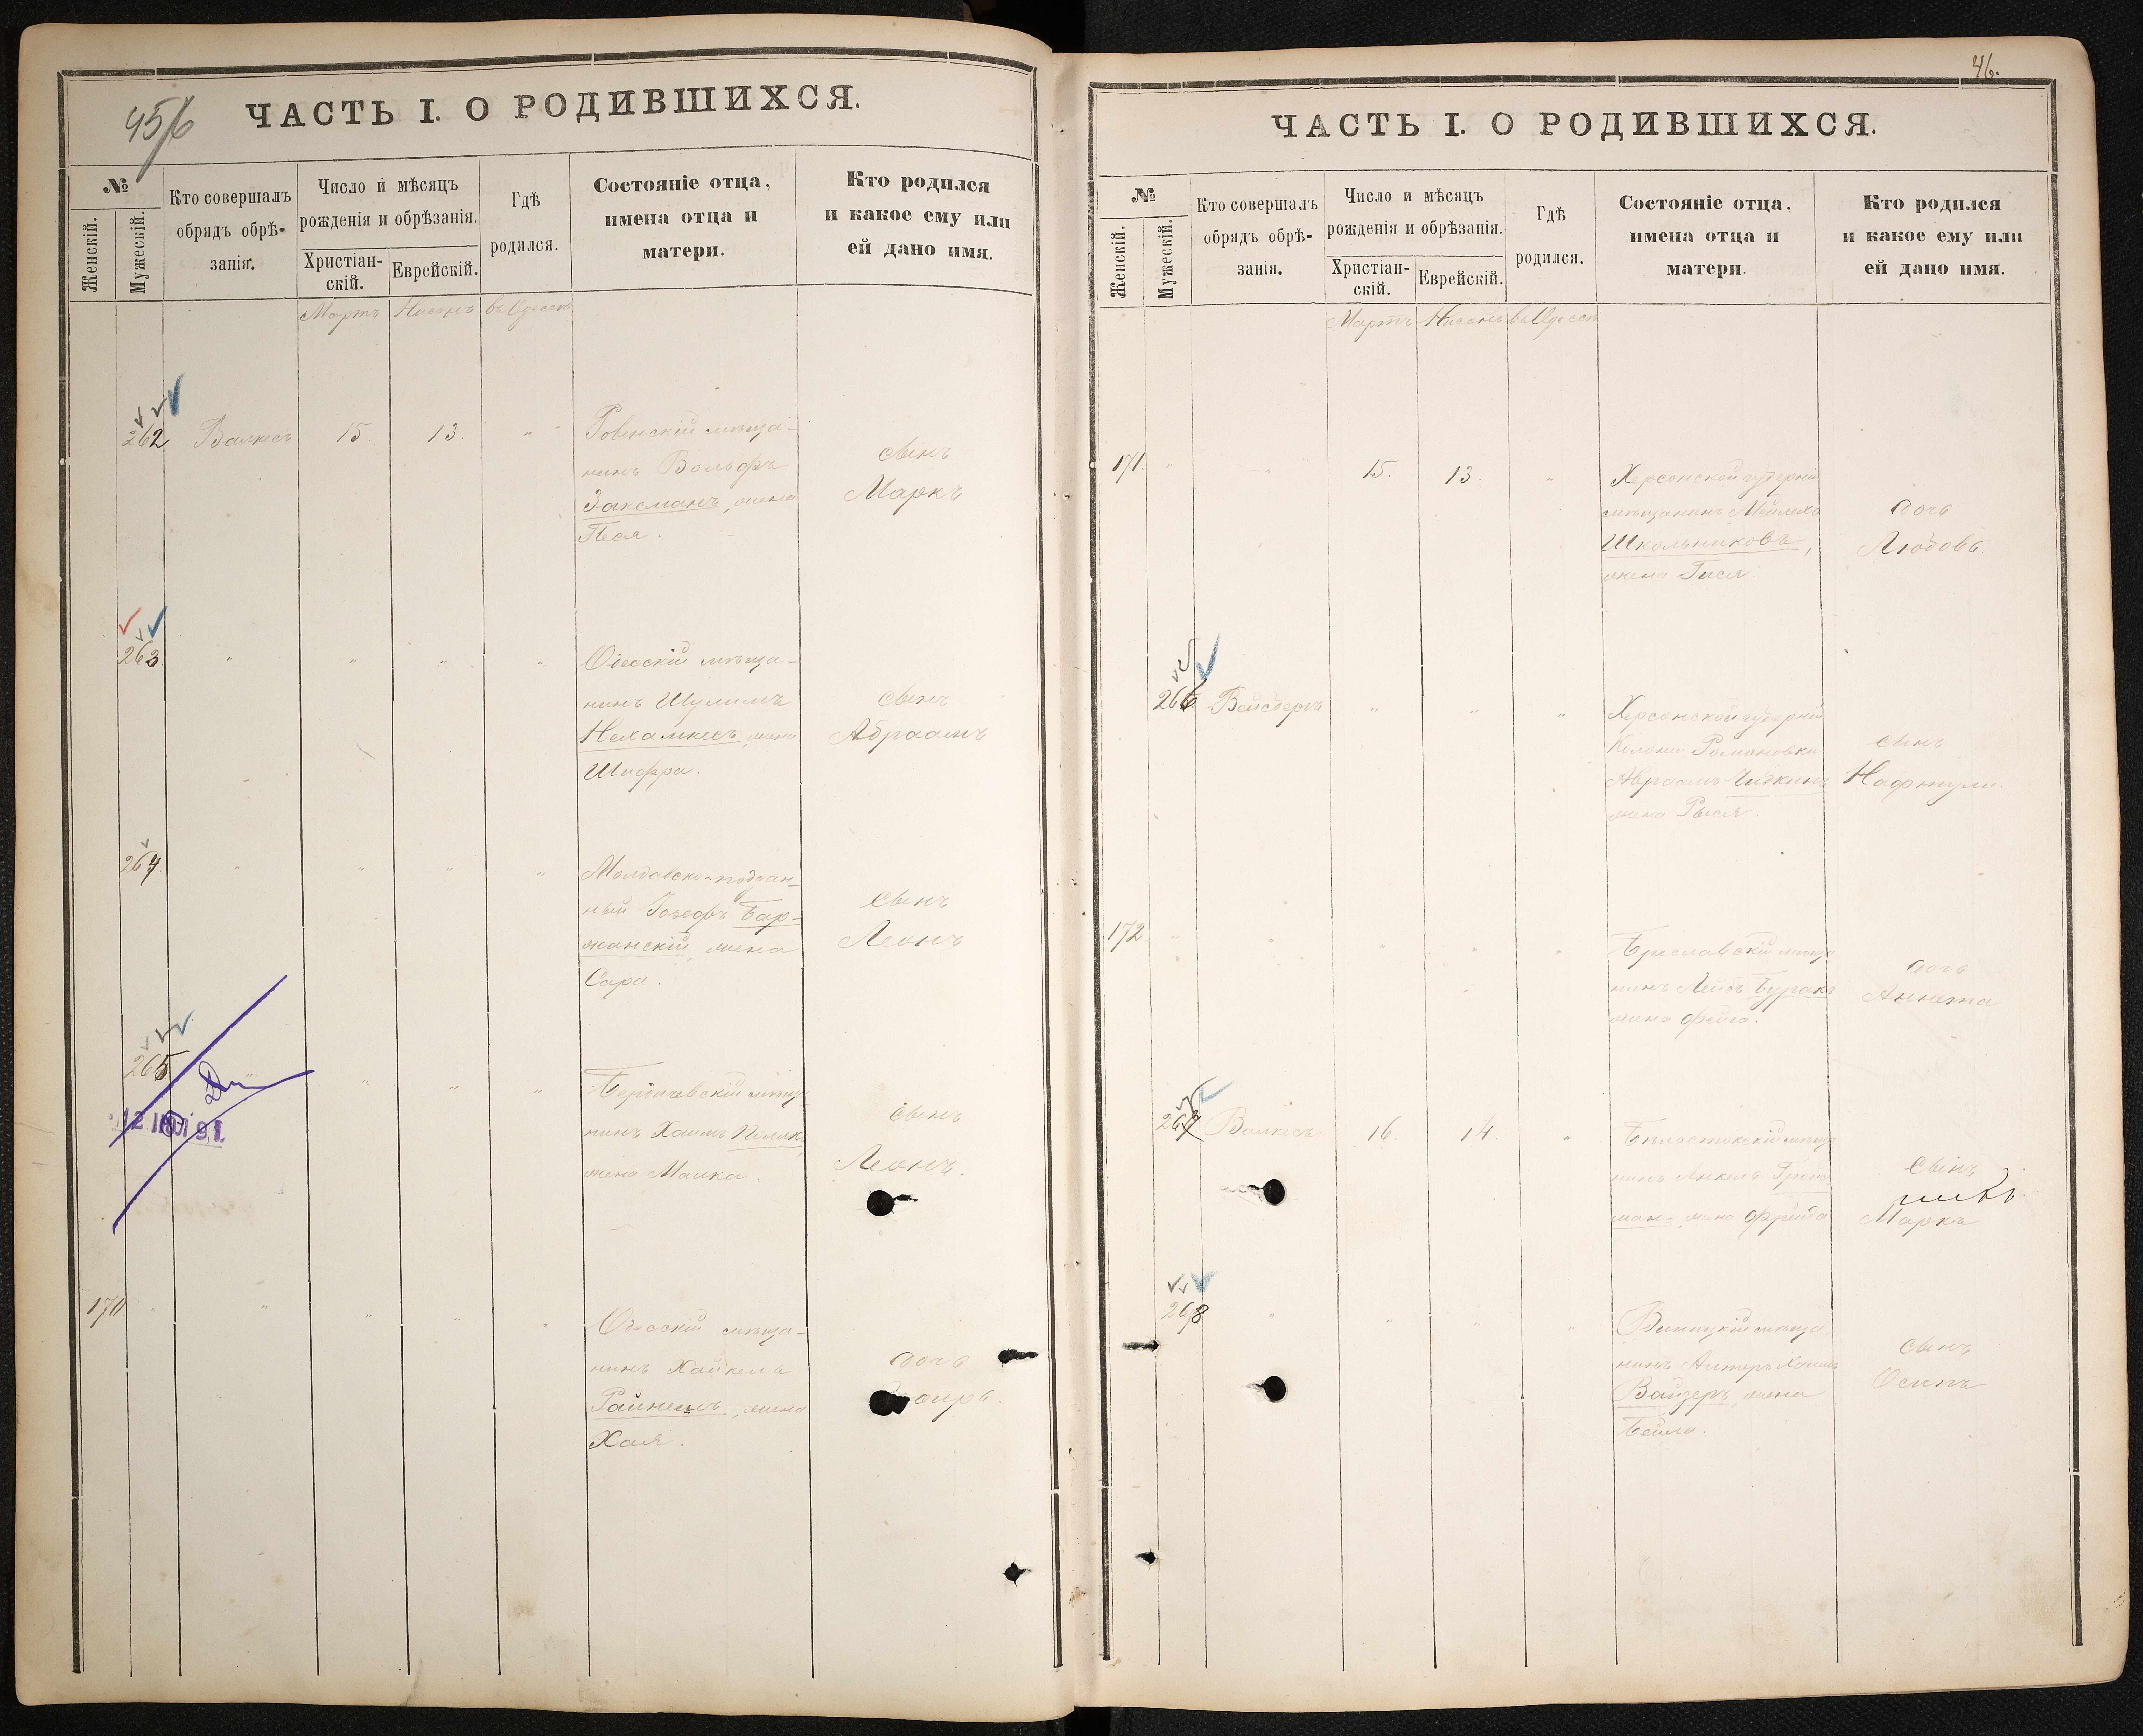 45/6
ЧАСТЬ I. О РОДИВШИХСЯ.
№
Женскій.
Мужескій.
Кто совершалъ
обрядъ обрѣ-
занія.
Число и мѣсяцъ
рожденія и обрѣзанія.
Христіан-
скій.
Еврейскій.
Гдѣ
родился.
Состояніе отца,
имена отца и
матери.
Кто родился
и какое ему или
ей дано имя.
Мартъ Нисонъ въ Одессѣ
262 Валкесъ 15. 13. "
Ровенскій мѣща-
нинъ Вольфъ
Заксманъ, жена
Песя.
сынъ
Маркъ
263 " " " "
Одесскій мѣща-
нинъ Шулимъ
Нехамкесъ, жена
Шифра.
сынъ
Абраамъ
264 " " " "
Молдавско-поддан-
ный Іозефъ Бар-
жанскій, жена
Сара.
сынъ
Леонъ
265 " " " "
Бердичевскій мѣща
нинъ Хаимъ Полякъ,
жена Малка.
сынъ
Леонъ.
12 91
170 " " " " "
Одесскій мѣща-
нинъ Хайкель
Хая.
дочь
46.
ЧАСТЬ I. О РОДИВШИХСЯ.
№
Женскій.
Мужескій.
Кто совершалъ
обрядъ обрѣ-
занія.
Число и мѣсяцъ
рожденія и обрѣзанія.
Христіан-
скій.
Еврейскій.
Гдѣ
родился.
Состояніе отца,
имена отца и
матери.
Кто родился
и какое ему или
ей дано имя.
Мартъ Нисонъ въ Одессѣ
171 " " 15. 13. "
Херсонской губерніи
мѣщанинъ Мейлехъ
Школьниковъ,
жена Гися.
дочь
Любовь.
266 Вейсбергъ " " "
Херсонской губерніи
Колоніи Романовки
Абраамъ
жена Рыся.
сынъ
Нафтули.
172 " " " " "
Бреславскій мѣща
нинъ Лейбъ Буракъ
жена Фейга.
дочь
Аннета
267 Валкесъ 16. 14. "
Бѣлостокскій мѣща
нинъ Янкель Грин-
манъ, жена Фрейда
сынъ
Маркъ
268 " " " "
Винницкій мѣща
нинъ Алтеръ Хаимъ
Вайзеръ, жена
Бейла.
сынъ
Осипъ